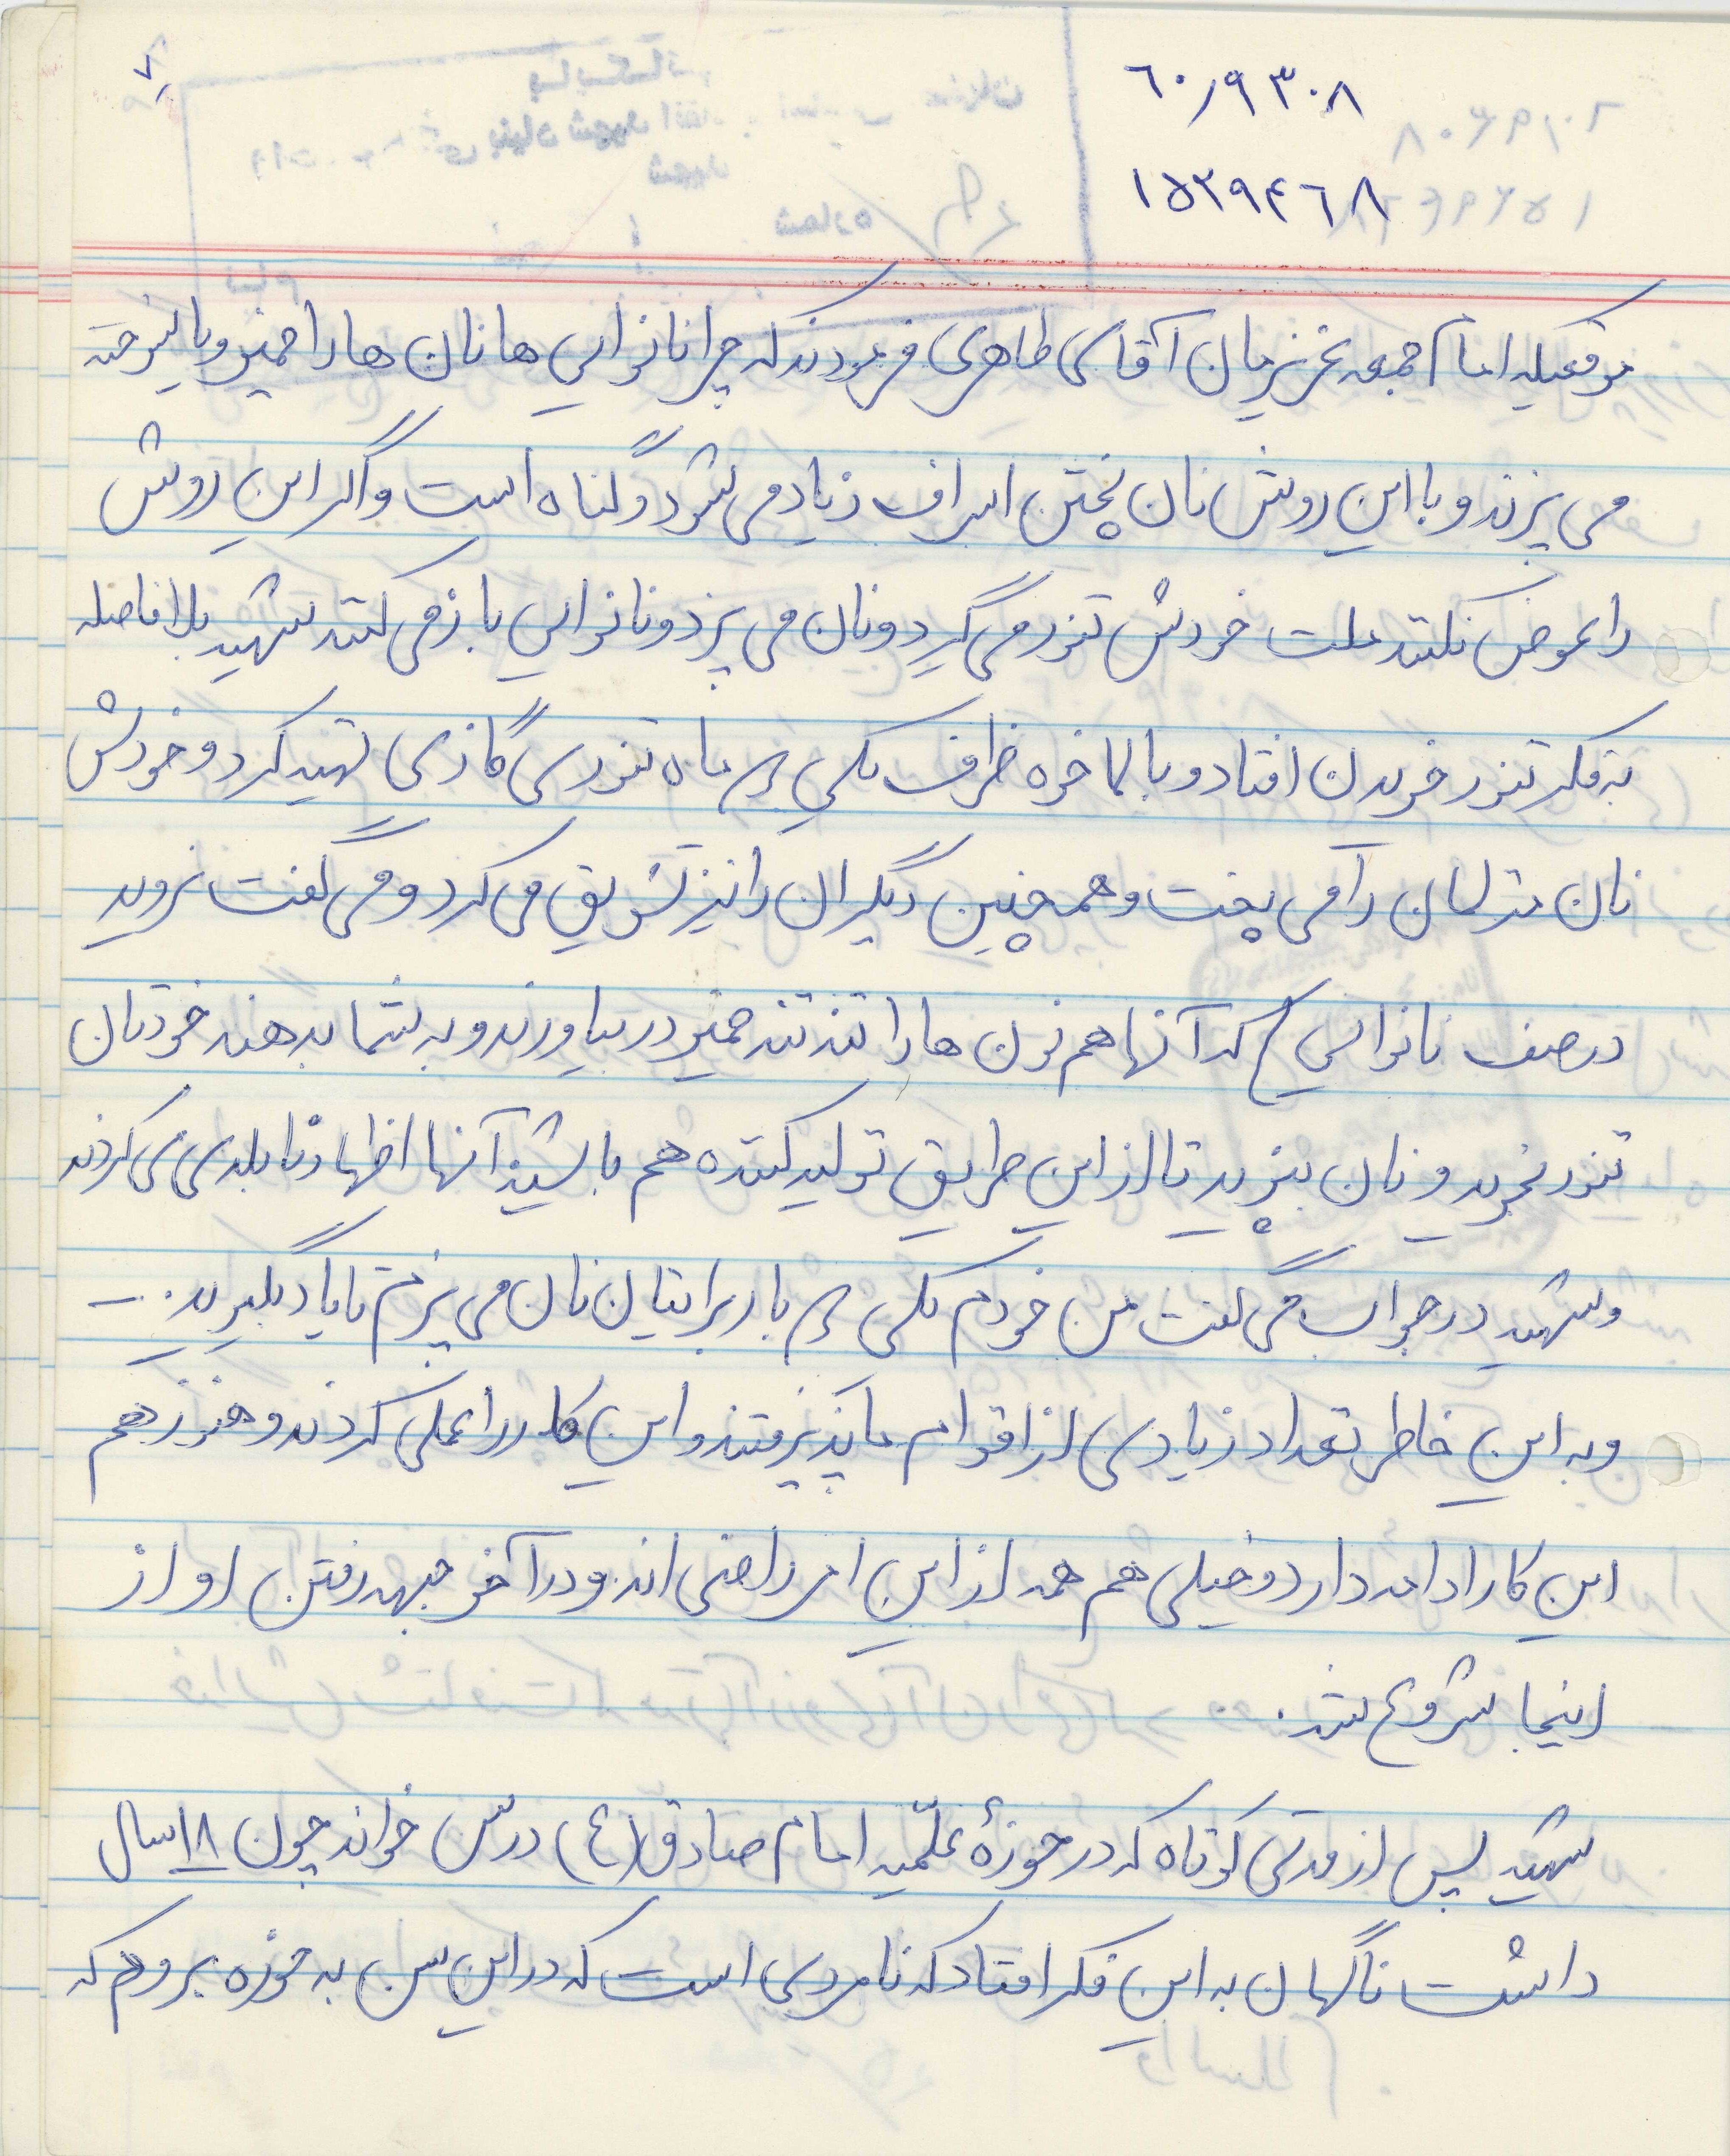 ۷
۶۰/۹۳۰۸
۱۵۲۹۴۶۸
موقعیکه امام جمعه عزیزمان آقای طاهری فرمودند که چرا نانوایی ها نان ها را خمیر و یا سوخته
می پزند و با این روش نان پختن اسراف زیاد می شود و گناه است و اگر این روش
را عوض نکنند ملت خودش تنور می گیرد و نان می پزد و نانوایی باز می کند شهید بلافاصله
به فکر تنور خریدن افتاد و بالاخره ظرف یکی دو ماه تنوری گازی تهیه کرد و خودش
نان منزلمان را می پخت و همچنین دیگران را نیز تشویق می کرد و می گفت نروید
در صف نانوایی که آنها هم نون ها را تند تند خمیر در بیاورند و به شما بدهند خودتان
تنور بخرید و نان بپزید تا از این طریق تولید کننده هم باشید آنها اظهار نابلدی می کردند
و شهید در جواب می گفت من خودم یکی دو بار برایتان نان می پزم تا یاد بگیرید.
و به این خاطر تعداد زیادی از اقوام ما پذیرفتند و این کار را عملی کردند و هنوز هم
این کار ادامه دارد و خیلی هم همه از این امر راضی اند و در آخر جبهه رفتن او از
اینجا شروع شد.
شهید پس از مدتی کوتاه که در حوزهٔ علمّیه امام صادق (ع) درس خواند چون ۱۸ سال
داشت ناگهان به این فکر افتاد که نامردی است که در این سن به حوزه بروم که